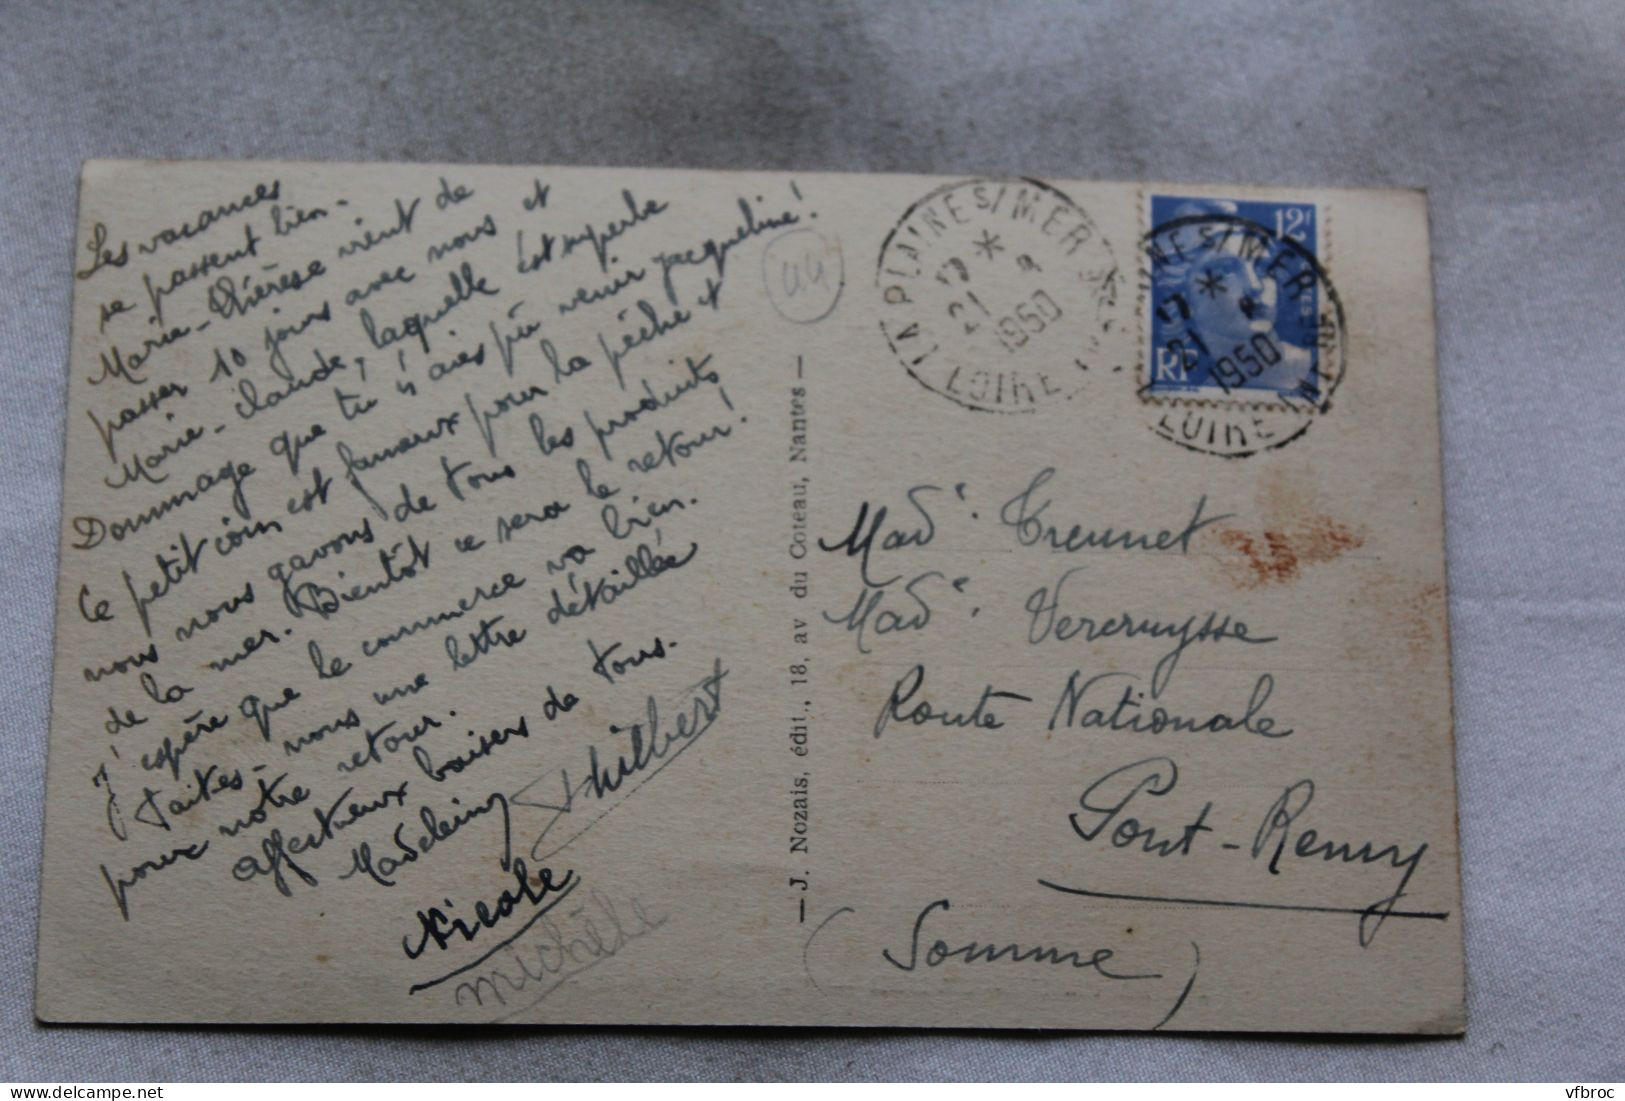 Les vacances
se passent bien.
Marie-Thérèse vient de
passer 10 jours avec nous et
Marie-Claude, laquelle est superbe
Dommage que tu n'aies pû venir jacqueline!
Ce petit coin est fameux pour la pêche et
nous nous gavons de tous les produits
de la mer. Bientôt ce sera le retour!
J'espère que le commerce va bien.
Faites-nous une lettre détaillée
pour notre retour.
affectueux baisers de tous.
Madeleine Philbert
Nicole
michèle
44
— J. Nozais, édit., 18, av du Coteau, Nantes —
LA PLAINE S/MER
21
1950
LOIRE INFRE
12F
RF
PLAINE S/MER
21
1950
LOIRE INFRE
Made. Treunet
Made. Vercruysse
Route Nationale
Pont-Remy
(Somme)
vfbroc